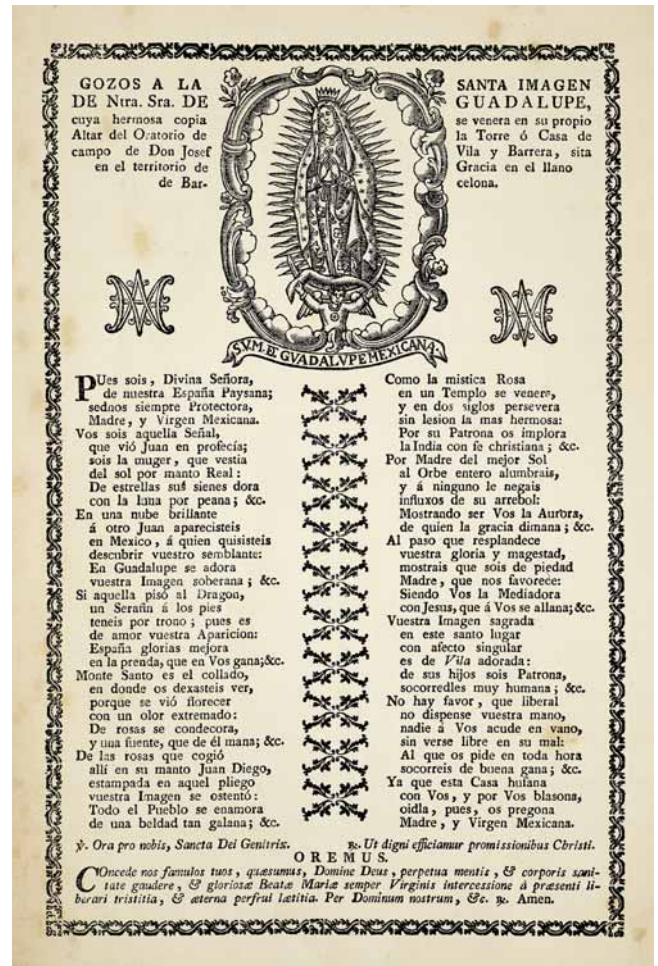 GOZOS A LA SANTA IMAGEN
DE Ntra. Sra. DE GUADALUPE,
cuya hermosa copia se venera en su propio
Altar del Oratorio de la Torre ó Casa de
campo de Don Josef Vila y Barrera, sita
en el territorio de Gracia en el llano
de Bar- celona.
S.V.M. DE GVADALVPE MEXICANA.
PUes sois, Divina Señora,
de nuestra España Paysana;
sednos siempre Protectora,
Madre, y Virgen Mexicana.
Vos sois aquella Señal,
que vió Juan en profecía;
sois la muger, que vestia
del sol por manto Real:
De estrellas sus sienes dora
con la luna por peana; &c.
En una nube brillante
á otro Juan aparecisteis
en Mexico, á quien quisisteis
descubrir vuestro semblante:
En Guadalupe se adora
vuestra Imagen soberana; &c.
Si aquella pisó al Dragon,
un Serafin á los pies
teneis por trono; pues es
de amor vuestra Aparicion:
España glorias mejora
en la prenda, que en Vos gana;&c.
Monte Santo es el collado,
en donde os dexasteis ver,
porque se vió florecer
con un olor extremado:
De rosas se condecora,
y una fuente, que de él mana; &c.
De las rosas que cogió
allí en su manto Juan Diego,
estampada en aquel pliego
vuestra Imagen se ostentó:
Todo el Pueblo se enamora
de una beldad tan galana; &c.
Como la mistica Rosa
en un Templo se venera,
y en dos siglos persevera
sin lesion la mas hermosa:
Por su Patrona os implora
la India con fe christiana; &c.
Por Madre del mejor Sol
al Orbe entero alumbrais,
y á ninguno le negais
influxos de su arrebol:
Mostrando ser Vos la Aurora,
de quien la gracia dimana; &c.
Al paso que resplandece
vuestra gloria y magestad,
mostrais que sois de piedad
Madre, que nos favorece:
Siendo Vos la Mediadora
con Jesus, que á Vos se allana;&c.
Vuestra Imagen sagrada
en este santo lugar
con afecto singular
es de Vila adorada:
de sus hijos sois Patrona,
socorredles muy humana; &c.
No hay favor, que liberal
no dispense vuestra mano,
nadie á Vos acude en vano,
sin verse libre en su mal:
Al que os pide en toda hora
socorreis de buena gana; &c.
Ya que esta Casa hufana
con Vos, y por Vos blasona,
oidla, pues, os pregona
Madre, y Virgen Mexicana.
℣. Ora pro nobis, Sancta Dei Genitrix. ℟. Ut digni efficiamur promissionibus Christi.
OREMUS.
COncede nos famulos tuos, quæsumus, Domine Deus, perpetua mentis, & corporis sani-
tate gaudere, & gloriosæ Beatæ Mariæ semper Virginis intercessione à præsenti li-
berari tristitia, & æterna perfrui lætitia. Per Dominum nostrum, &c. ℟. Amen.